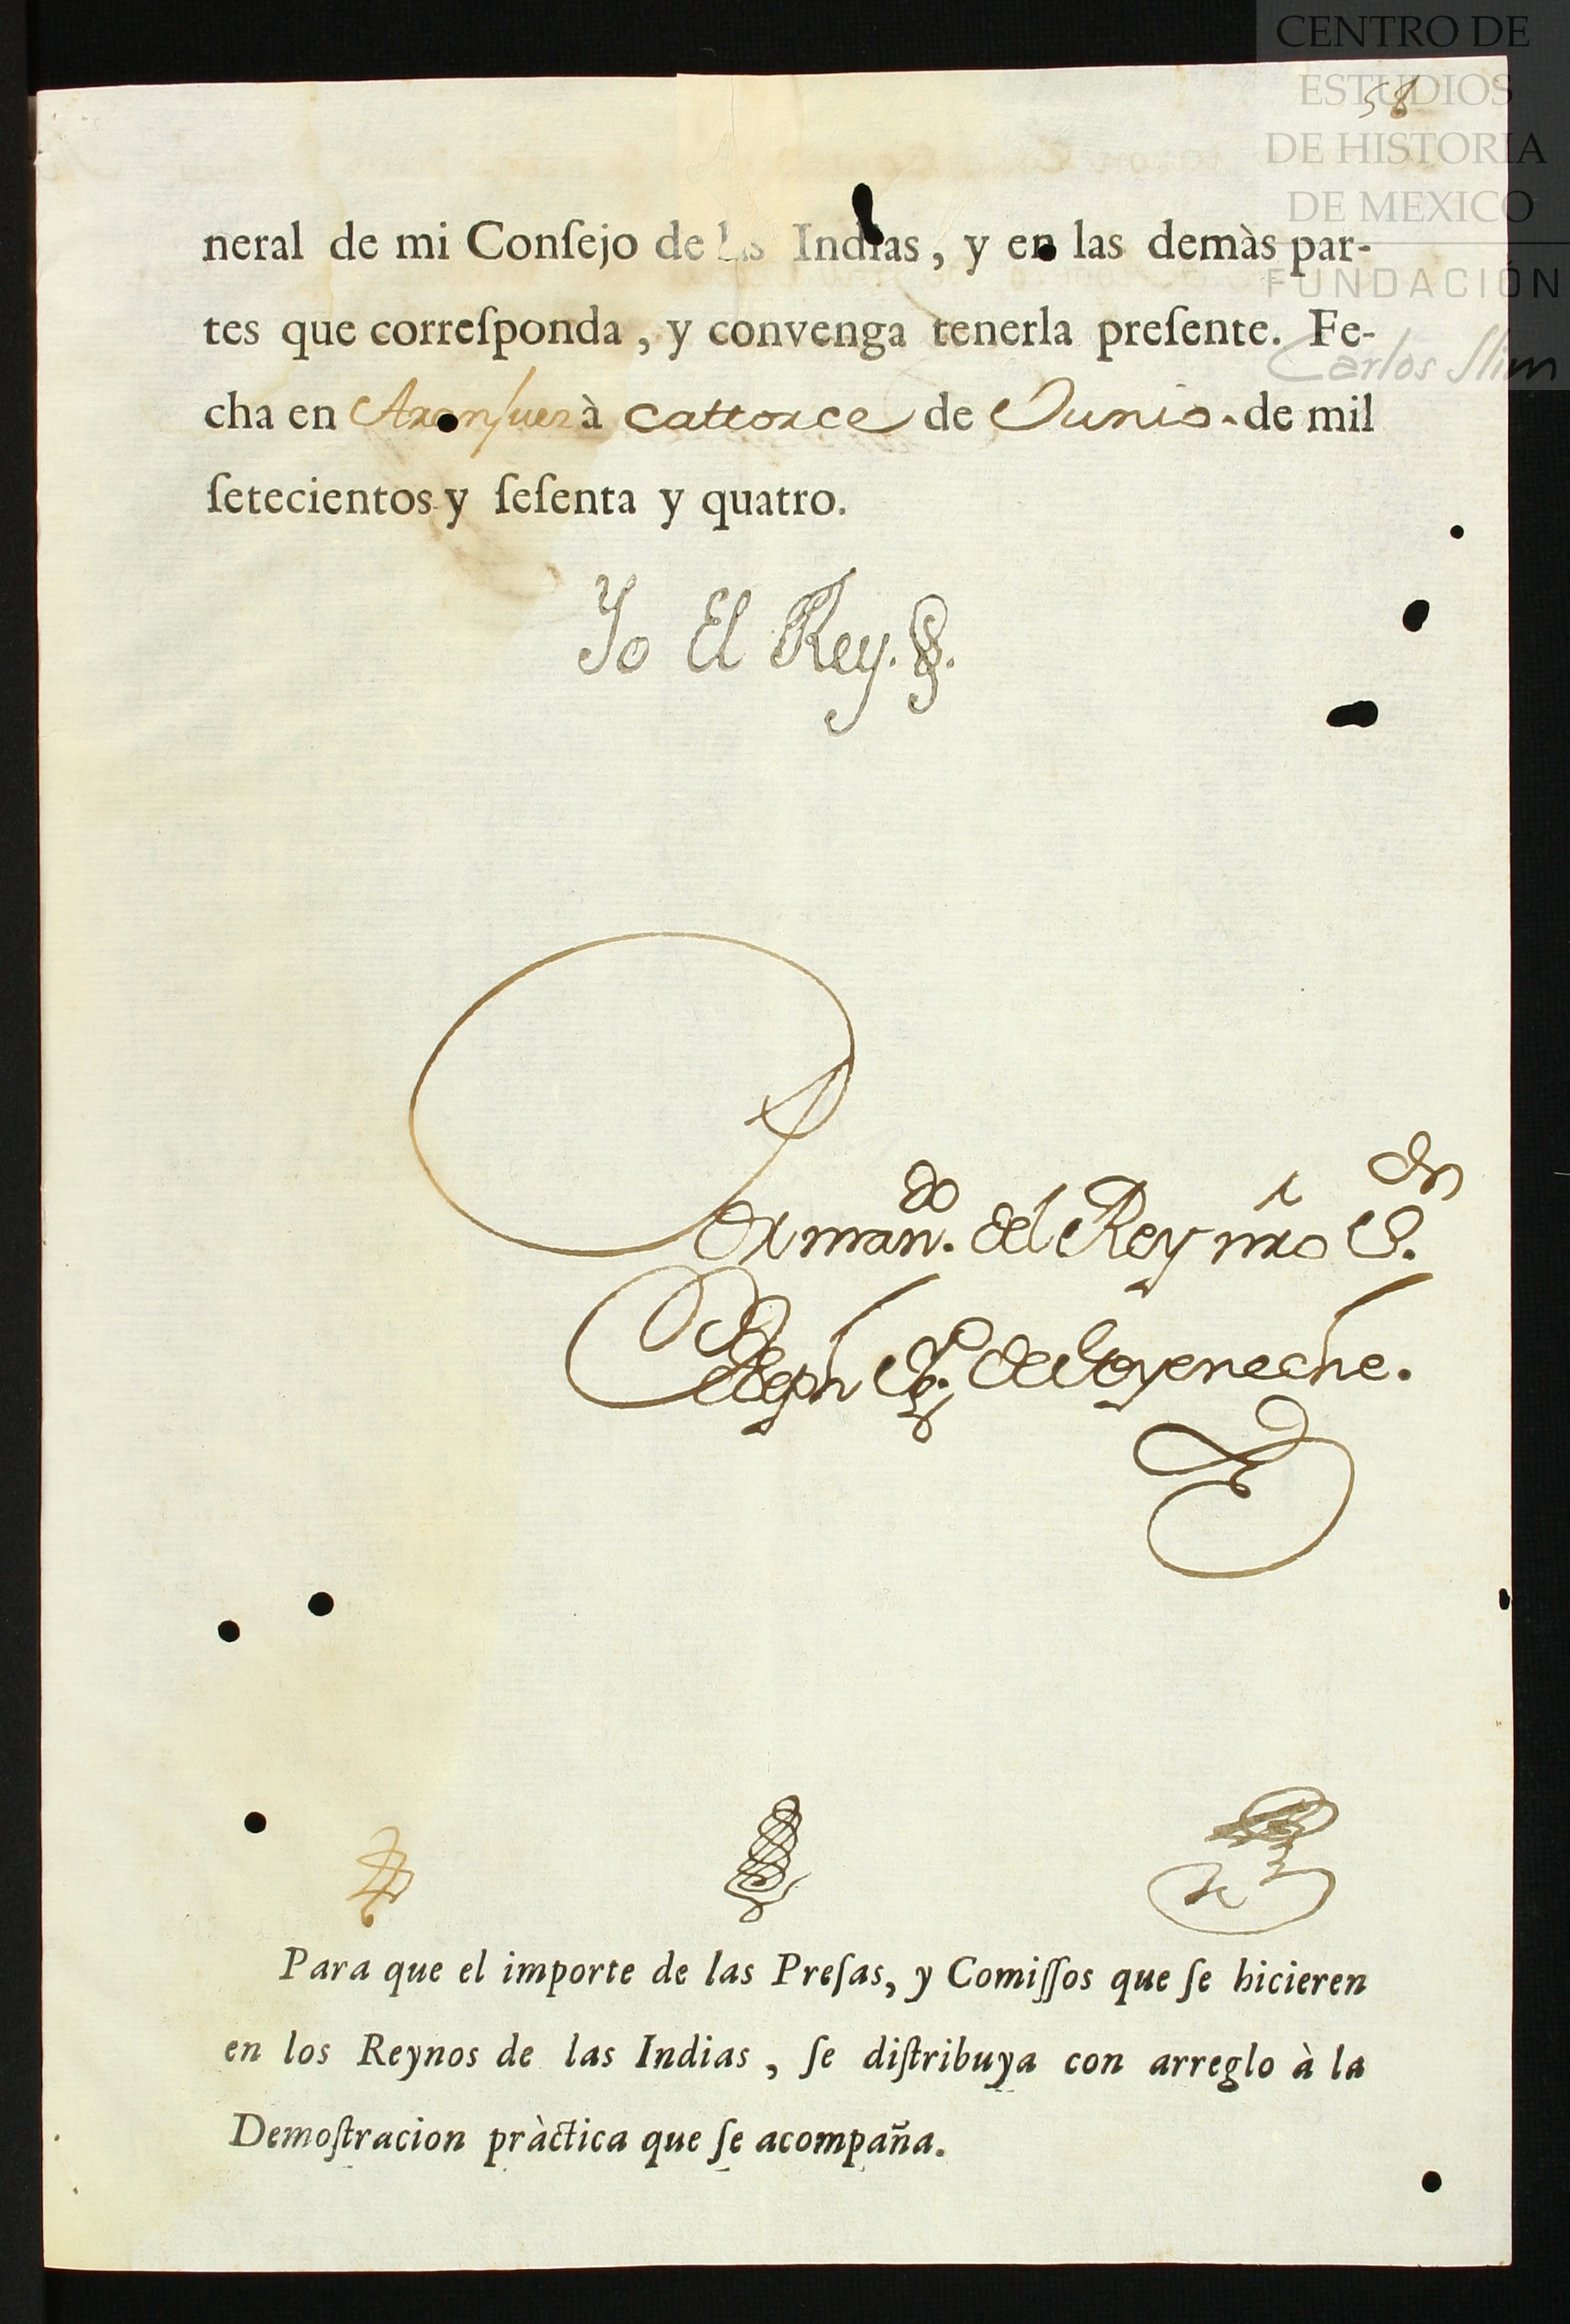 CENTRO DE
ESTUDIOS
DE HISTORIA
DE MEXICO
FUNDACIÓN
Carlos Slim
58
neral de mi Conſejo de las Indias, y en las demàs par-
tes que correſponda, y convenga tenerla preſente. Fe-
cha en Aranjuez à cattorce de Junio de mil
ſetecientos y ſeſenta y quatro.
Yo El Rey.
Por man.do del Rey nro S.or
Joseph Ig.o de Goyeneche.
Para que el importe de las Preſas, y Comiſſos que ſe hicieren
en los Reynos de las Indias, ſe diſtribuya con arreglo à la
Demoſtracion pràctica que ſe acompaña.